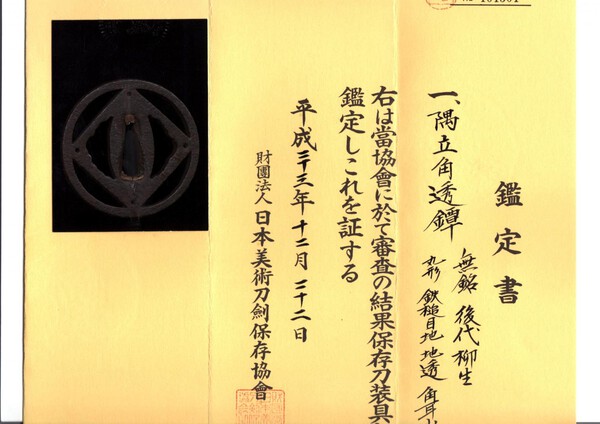 鑑定書
一、隅立角透鐔
無銘 後代柳生
丸形 鉄槌目地 地透 角耳
右は當協會に於て審査の結果保存刀装具
鑑定しこれを証する
平成二十三年十二月二十二日
財團法人 日本美術刀劍保存協會